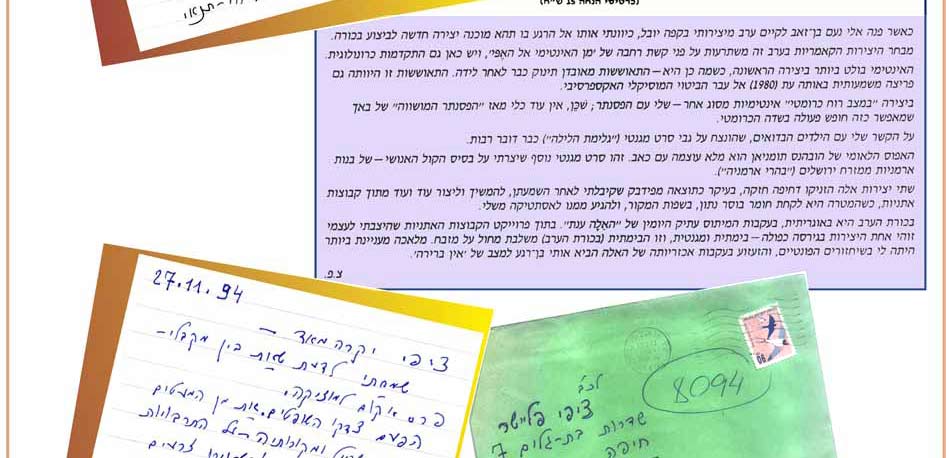 (כרטיסי הנחה 15 ש״ח)
כאשר פנה אלי נעם בן־זאב לקיים ערב מיצירותי בקפה יובל, כיוונתי אותו אל הרגע בו תהא מוכנה יצירה חדשה לביצוע בכורה.
מבחר היצירות הקאמריות בערב זה משתרעות על פני קשת רחבה של ׳מן האינטימי אל האֶפּי׳, ויש כאן גם התקדמות כרונולוגית.
האינטימי בולט ביותר ביצירה הראשונה, כשמה כן היא — התאוששות מאובדן תינוק כבר לאחר לידה. התאוששות זו היוותה גם
פריצה משמעותית באותה עת (1980) אל עבר הביטוי המוסיקלי האקספרסיבי.
ביצירה ״במצב רוח כרומטי״ אינטימיות מסוג אחר — שלי עם הפסנתר; שכֵּן, אין עוד כלי מאז ״הפסנתר המושווה״ של באך
שמאפשר כזה חופש פעולה בשדה הכרומטי.
על הקשר שלי עם הילדים הבדואים, שהונצח על גבי סרט מגנטי (״גלימת הלילה״) כבר דובר רבות.
האפוס הלאומי של הובהנס תומניאן הוא מלא עוצמה עם כאב. זהו סרט מגנטי נוסף שיצרתי על בסיס הקול האנושי — של בנות
ארמניות ממזרח ירושלים (״בהרי ארמניה״).
שתי יצירות אלה הזניקו דחיפה חזקה, בעיקר כתוצאה מפידבק שקיבלתי לאחר השמעתן, להמשיך וליצור עוד ועוד מתוך קבוצות
אתניות, כשהמטרה היא לקחת חומר בוסר נתון, בשפות המקור, ולהגיע ממנו לאסתטיקה משלי.
בכורת הערב היא באוגריתית, בעקבות המיתוס עתיק היומין של ״האֵלָה ענת״. בתוך פרוייקט הקבוצות האתניות שהיצבתי לעצמי
זוהי אחת היצירות בגירסה כפולה — בימתית ומגנטית, וזו הבימתית (בכורת הערב) משלבת מחול על מזבח. מלאכה מעניינת ביותר
היתה לי בשיחזורים הפונטיים, והזעזוע בעקבות אכזריותה של האלה הביא אותי בן־רגע למצב של ׳אין ברירה׳.
צ.פ.
27.11.94
ציפי יקרה מאוד —
שמחתי לדעת שאת בין מקבלי־
פרס אקו״ם למוזיקה.
הפעם צדקו השופטים. את מן המעטים
ומקורותיה של התרבויות
לכב׳
ציפי פליישר
שדרות בת־גלים 7
חיפה
8094